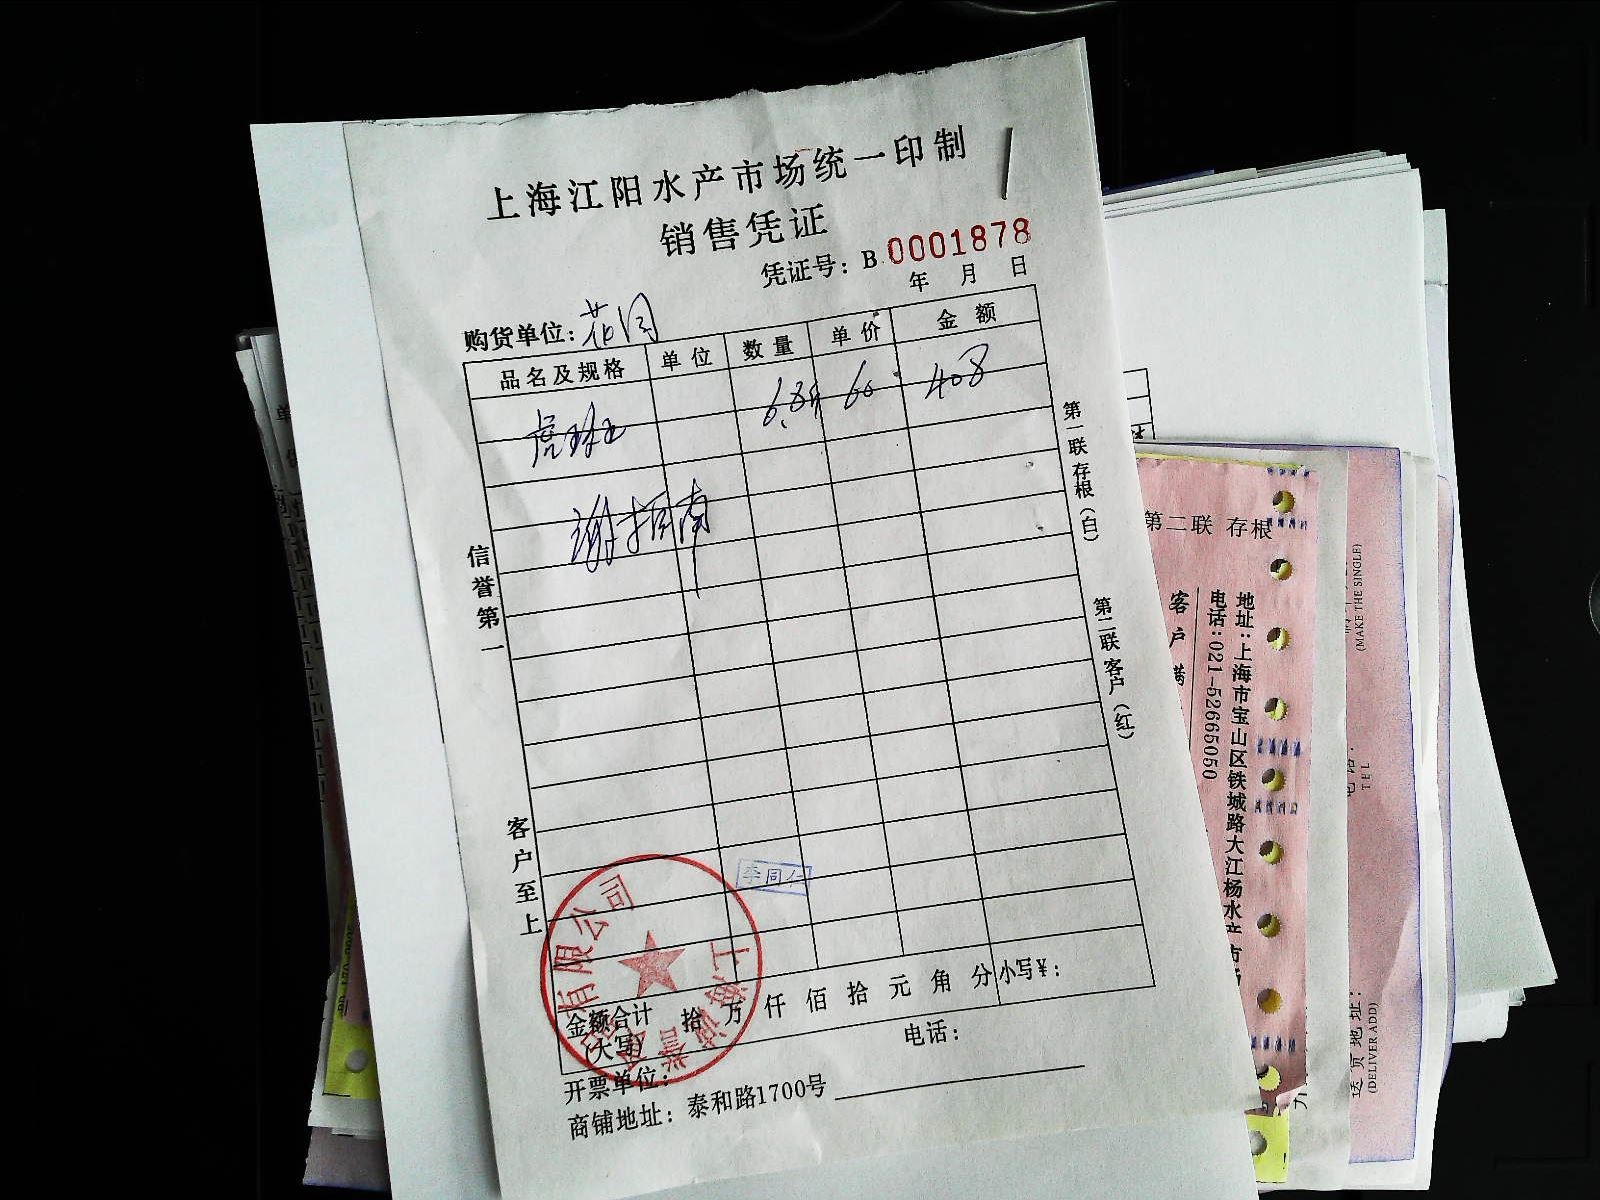 上海江阳水产市场统一印制
销售凭证
凭证号：B 0001878
年 月 日
购货单位：花园
品名及规格 单位 数量 单价 金额
虎班 6.8斤 60 408
谢振南
信誉第一
客户至上
第一联存根（白）
第二联客户（红）
李同仁
上海 有限公司
金额合计（大写） 拾 万 仟 佰 拾 元 角 分 小写¥：
开票单位： 电话：
商铺地址：泰和路1700号
第二联 存根
客户满
地址：上海市宝山区铁城路大江杨水产市场
电话：021-52665050
(MAKE THE SINGLE)
电话：
TEL
送货地址：
(DELIVER ADD)